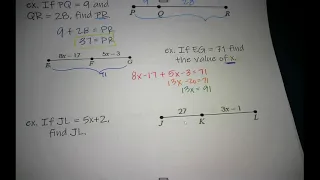 ex. If PQ = 9 and
QR = 28, find PR
P Q R
9 + 28 = PR
37 = PR
8x-17 5x-3
E F G
71
ex. If EG = 71 find
the value of x.
8x-17 + 5x-3 = 71
13x-20=71
13x = 91
ex. If JL = 5x+2,
find JL.
27 3x - 1
J K L